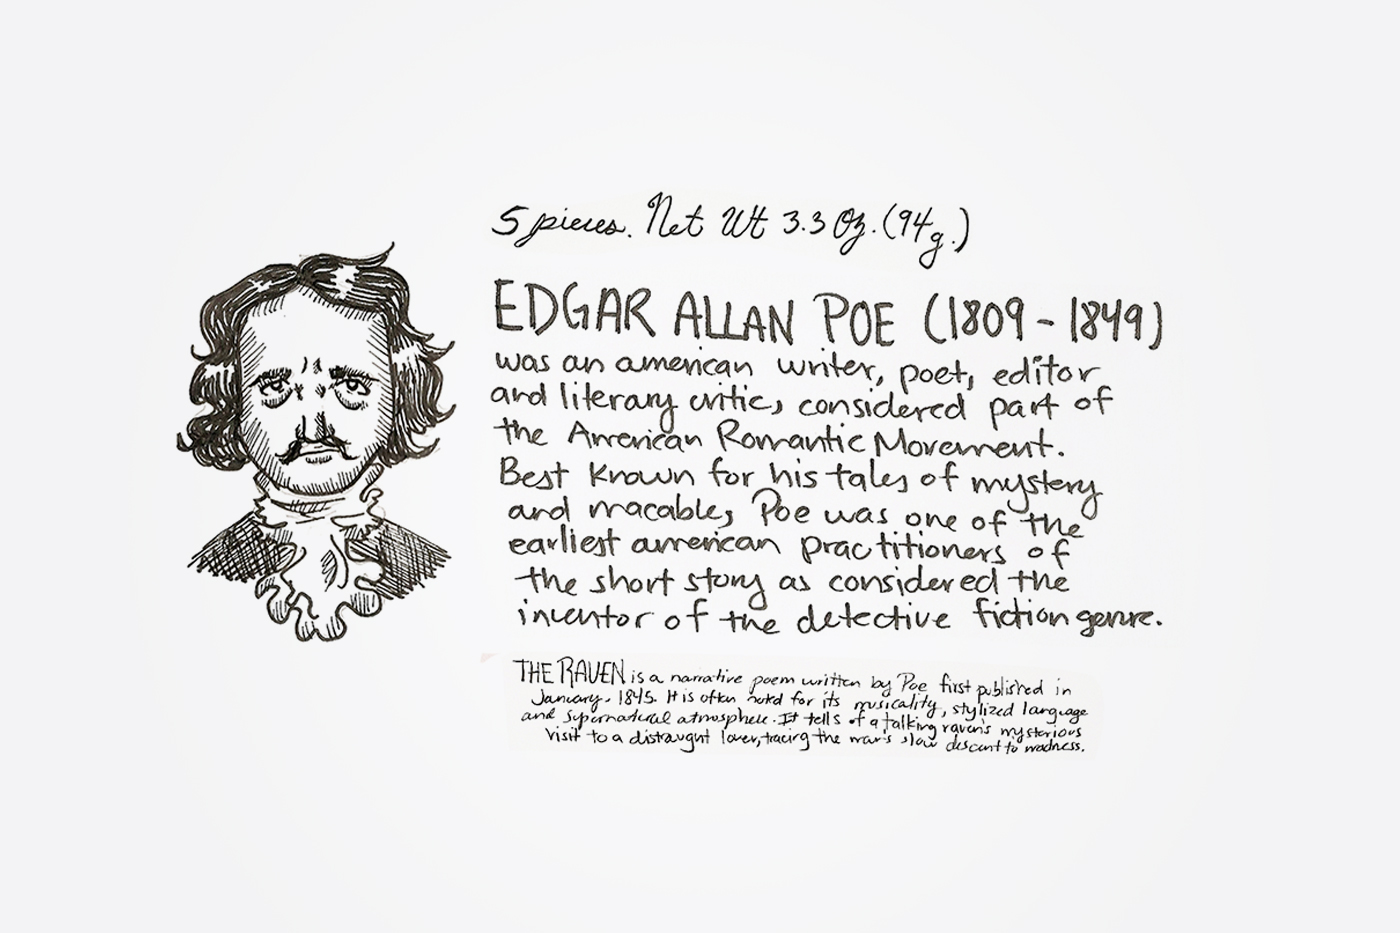 5 pieces. Net Wt 3.3 Oz. (94g.)
EDGAR ALLAN POE (1809 - 1849)
was an american writer, poet, editor
and literary critic, considered part of
the American Romantic Movement.
Best known for his tales of mystery
and macable, Poe was one of the
earliest american practitioners of
the short story as considered the
inventor of the detective fiction genre.
THE RAVEN is a narrative poem written by Poe first published in
January, 1845. It is often noted for its musicality, stylized language
and supernatural atmosphere. It tells of a talking raven's mysterious
visit to a distraught lover, tracing the man's slow descent to madness.